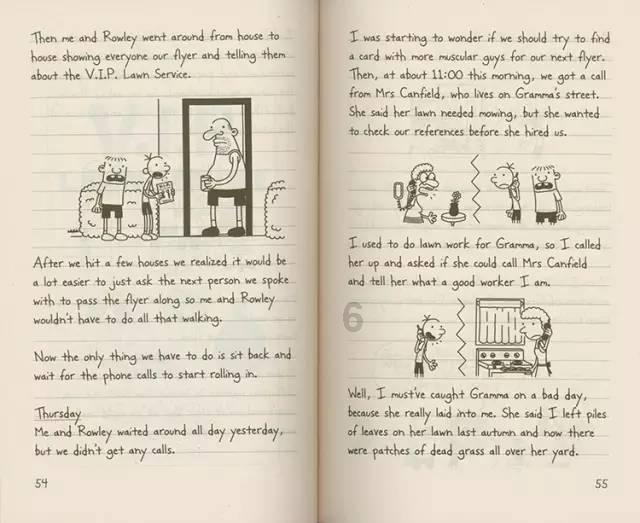 Then me and Rowley went around from house to
house showing everyone our flyer and telling them
about the V.I.P. Lawn Service.
After we hit a few houses we realized it would be
a lot easier to just ask the next person we spoke
with to pass the flyer along so me and Rowley
wouldn't have to do all that walking.
Now the only thing we have to do is sit back and
wait for the phone calls to start rolling in.
Thursday
Me and Rowley waited around all day yesterday,
but we didn't get any calls.
54
I was starting to wonder if we should try to find
a card with more muscular guys for our next flyer.
Then, at about 11:00 this morning, we got a call
from Mrs Canfield, who lives on Gramma's street.
She said her lawn needed mowing, but she wanted
to check our references before she hired us.
I used to do lawn work for Gramma, so I called
her up and asked if she could call Mrs Canfield
and tell her what a good worker I am.
6
Well, I must've caught Gramma on a bad day,
because she really laid into me. She said I left piles
of leaves on her lawn last autumn and now there
were patches of dead grass all over her yard.
55